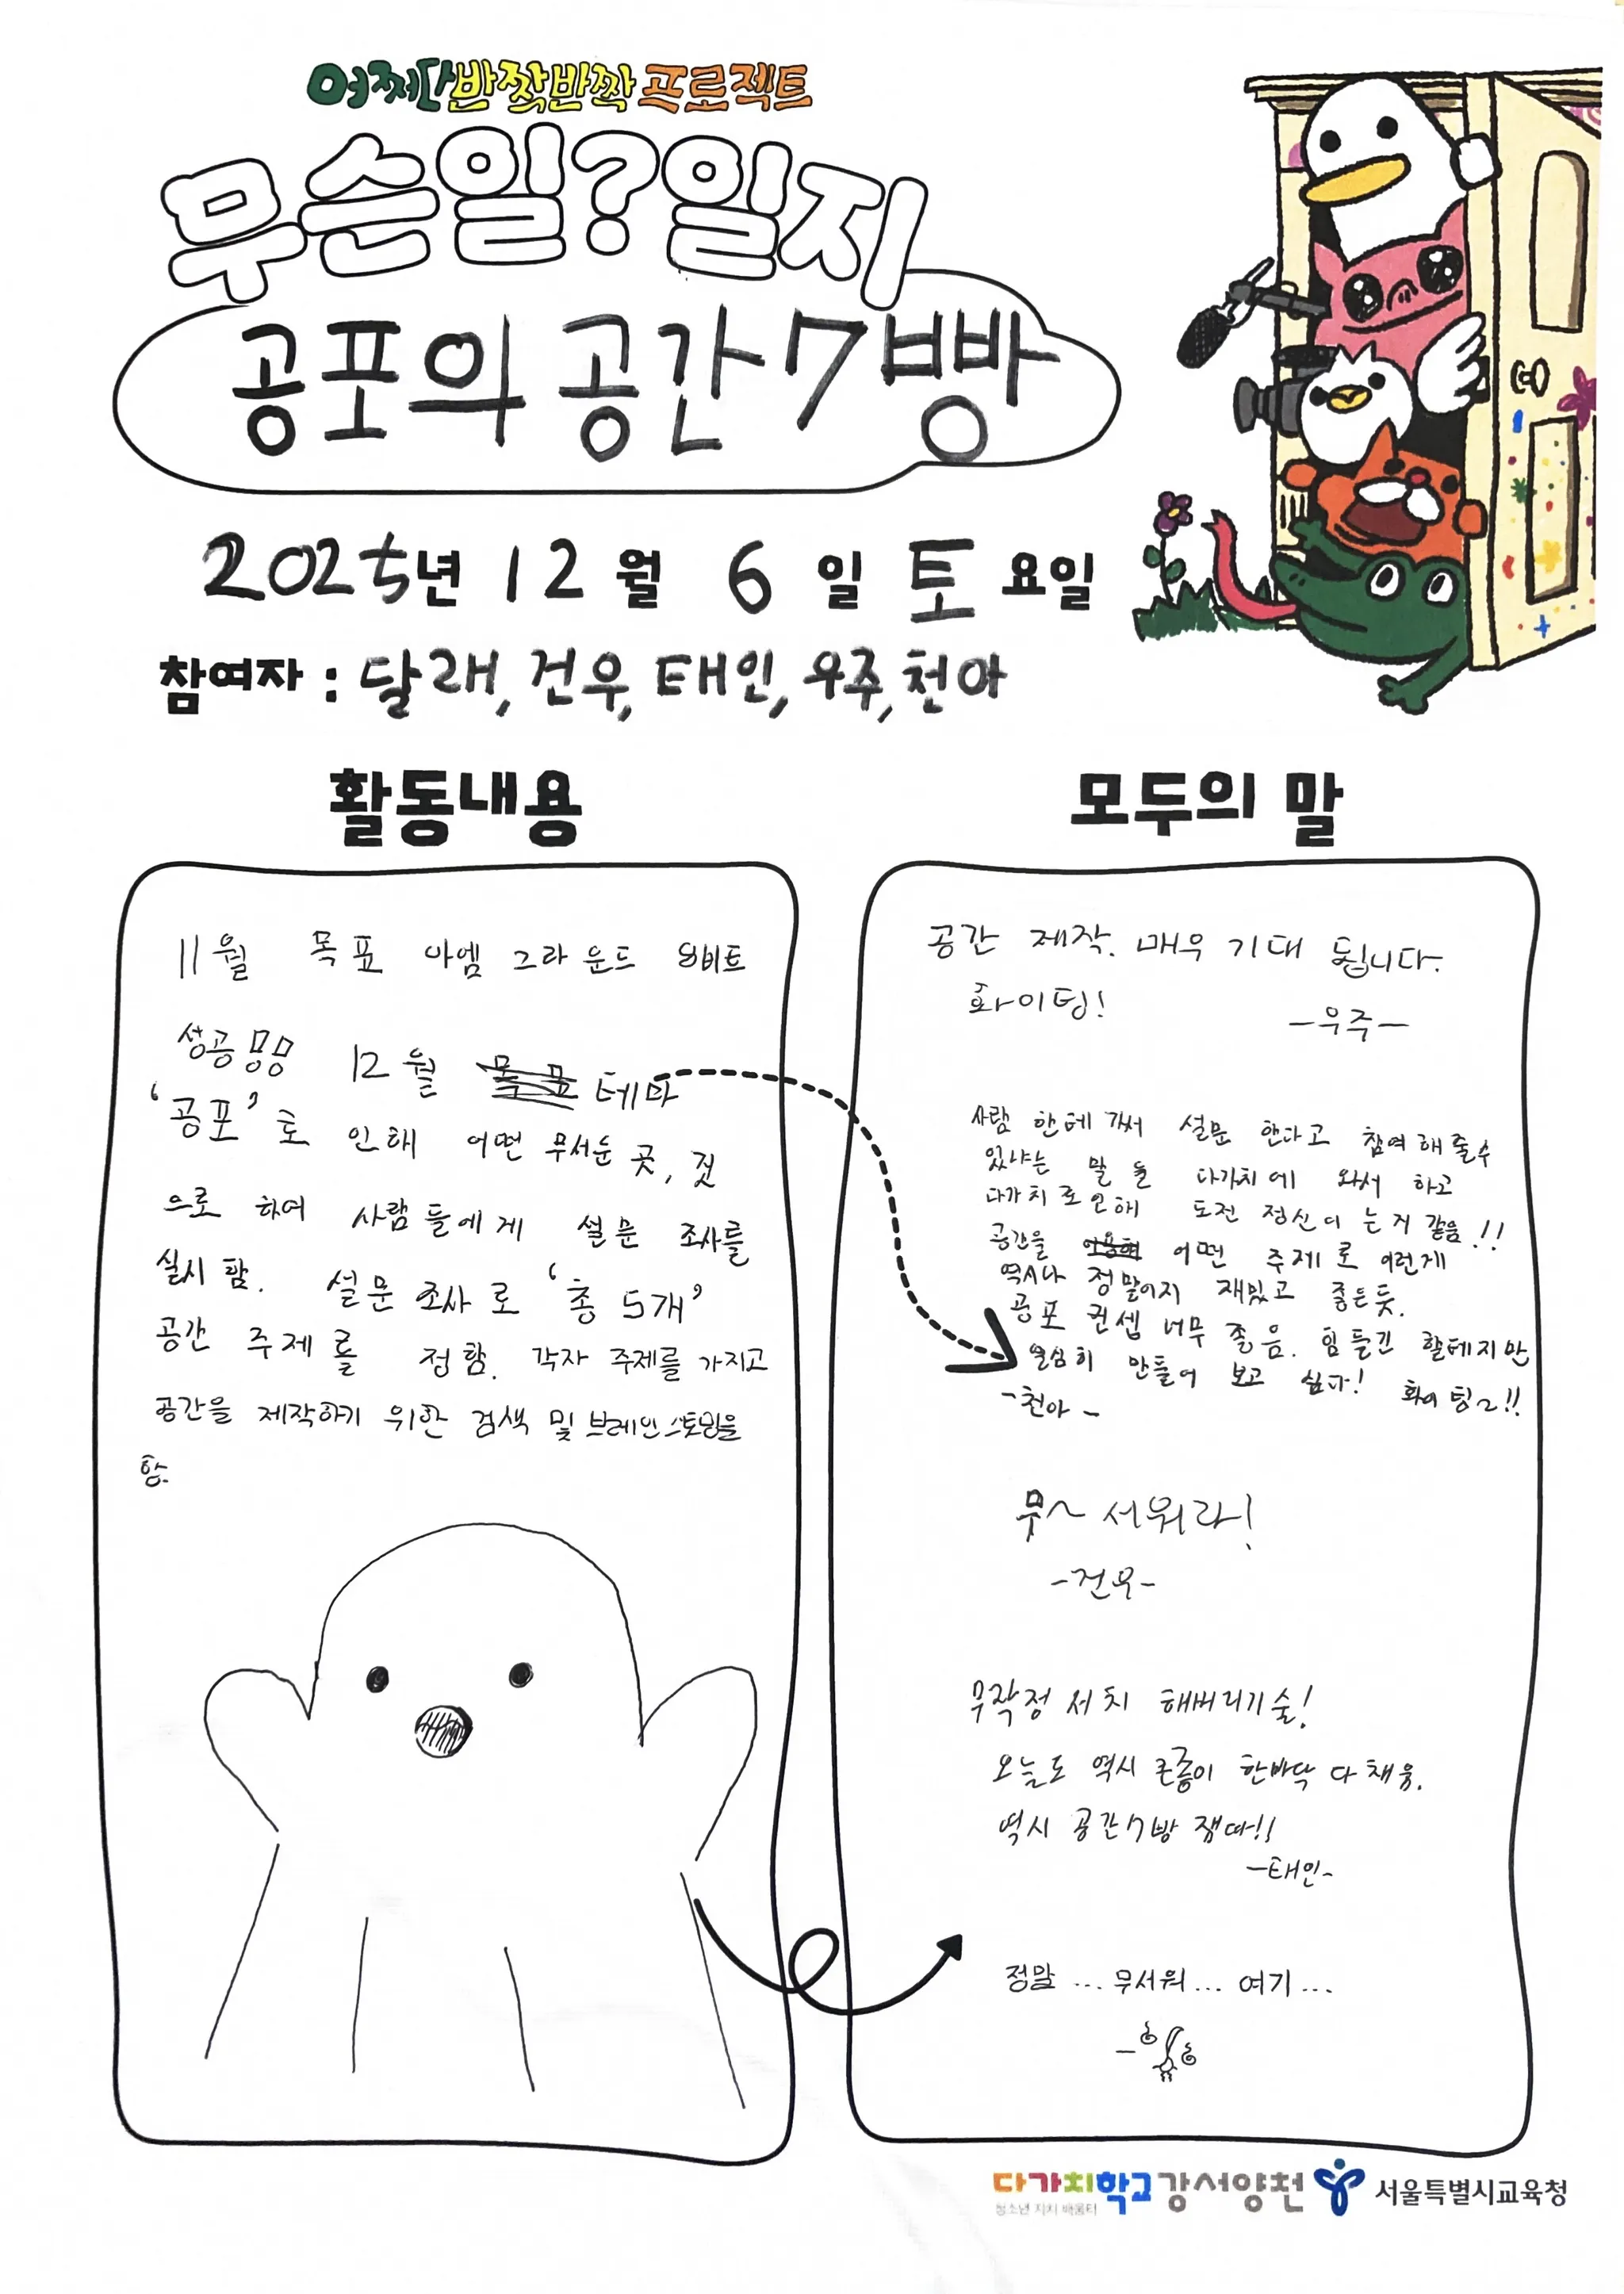 어쩌다반짝반짝프로젝트
무슨일?일지
공포의 공간7빵
2025년 12월 6일 토요일
참여자 : 달래, 건우, 태인, 우주, 천아
활동내용
11월 목표 아엠 그라운드 8비트
성공 12월 테마
'공포'로 인해 어떤 무서운 곳, 것
으로 하여 사람들에게 설문 조사를
실시 함. 설문 조사로 '총 5개'
공간 주제를 정함. 각자 주제를 가지고
공간을 제작하기 위한 검색 및 브레인스토밍을
함.
모두의 말
공간 제작. 매우 기대 됩니다.
화이팅!
-우주-
사람 한테 가서 설문 한다고 참여 해 줄수
있냐는 말을 다가치에 와서 하고
다가치로 인해 도전 정신이 는거 같음!!
공간을 어떤 주제로 이렇게
역시나 정말이지 재밌고 좋은듯.
공포 컨셉 너무 좋음. 힘들긴 할테지만
열심히 만들어 보고 싶다! 화이팅~!!
-천아-
무~서워라!
-건우-
무작정 서치 해버리기술!
오늘도 역시 큰종이 한바닥 다 채움.
역시 공간7빵 잼따!!
-태인-
정말... 무서워... 여기...
다가치학교강서양천
청소년 자치 배움터
서울특별시교육청